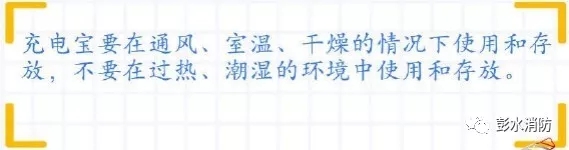 充电宝要在通风、室温、干燥的情况下使用和存
放，不要在过热、潮湿的环境中使用和存放。
彭水消防